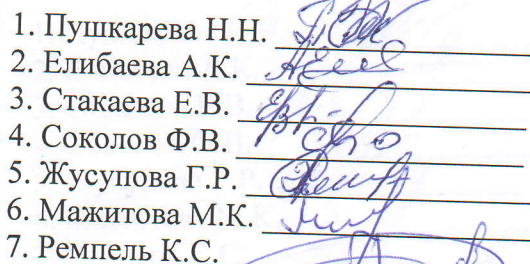 1. Пушкарева Н.Н.
2. Елибаева А.К.
3. Стакаева Е.В.
4. Соколов Ф.В.
5. Жусупова Г.Р.
6. Мажитова М.К.
7. Ремпель К.С.